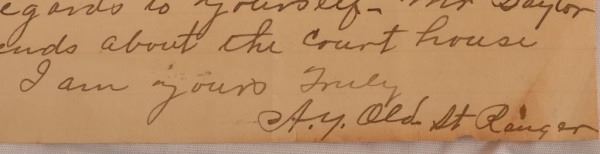 egards to yourself - Mr Saylor
ends about the court house
I am yours Truly
A.Y. Old St Ranger